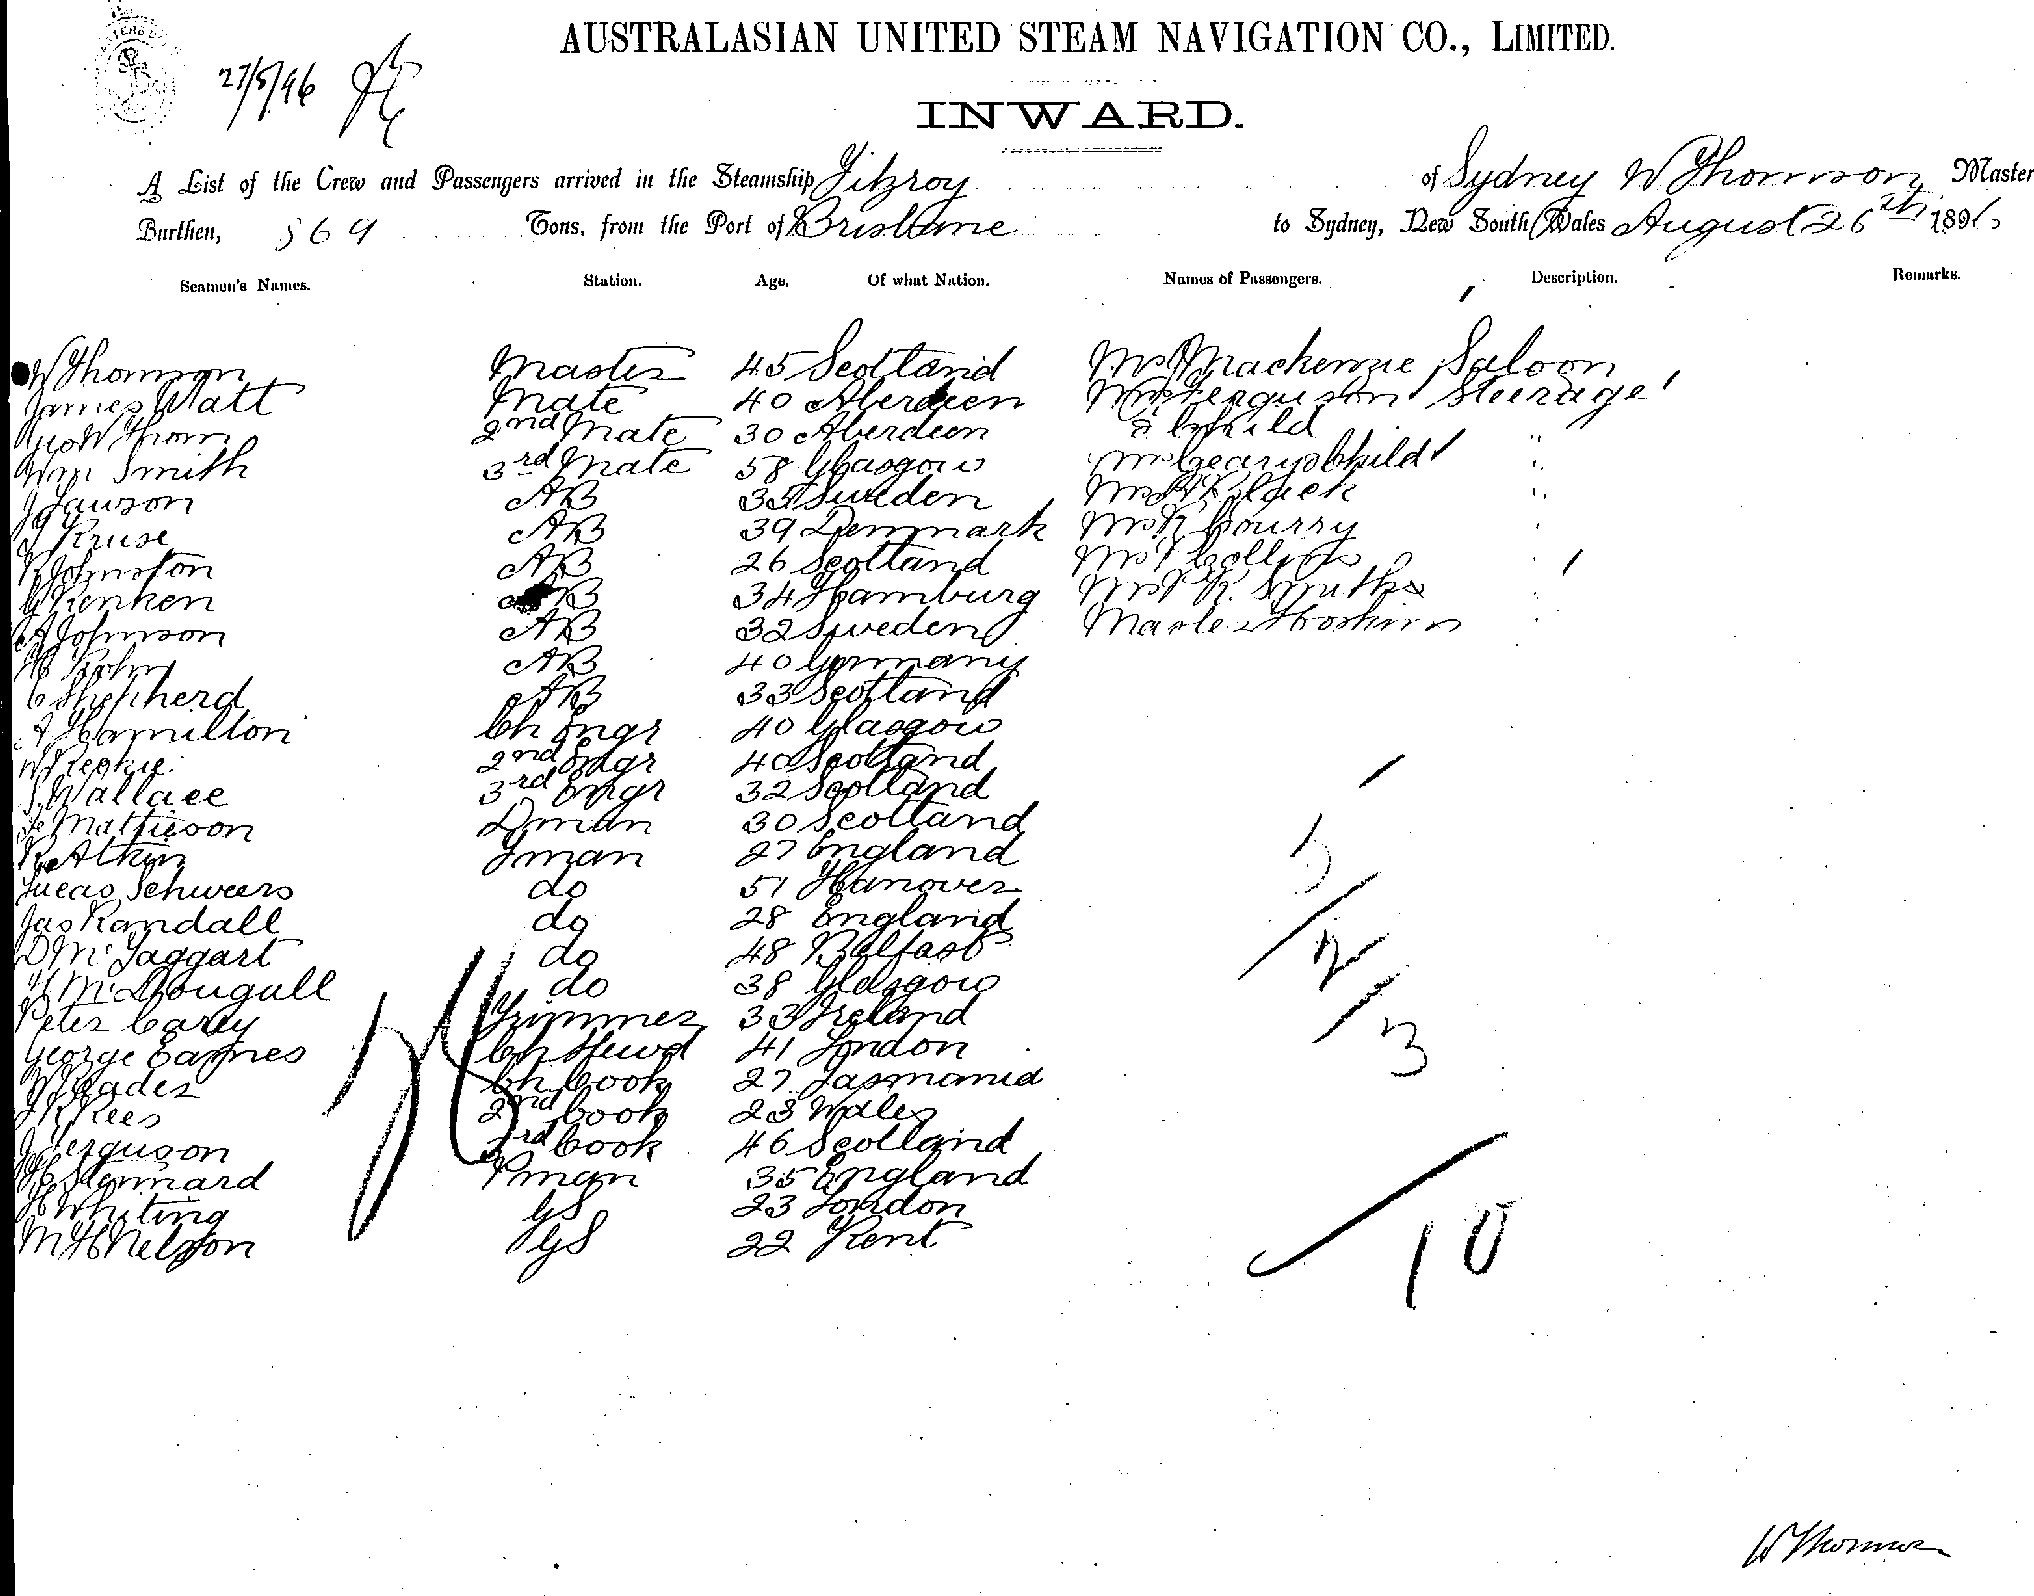 AUSTRALASIAN UNITED STEAM NAVIGATION CO., LIMITED.
27/8/96
INWARD.
A List of the Crew and Passengers arrived in the Steamship Fitzroy of Sydney W Thomson Master
Burthen, 569 Tons, from the Port of Brisbane to Sydney, New South Wales August 26th 1896
Seamen's Names. Station. Age. Of what Nation. Names of Passengers. Description. Remarks.
W Thomson Master 45 Scotland Mr Mackenzie Saloon
James Watt Mate 40 Aberdeen Mrs Ferguson Steerage
Geo W Thom 2nd Mate 30 Aberdeen & Child "
Wm Smith 3rd Mate 58 Glasgow Mrs Geary & Child "
J Lawson AB 35 Sweden Mr Black "
J Kruse AB 39 Denmark Mr R Courry "
R Johnston AB 26 Scotland Mr Collins "
G Renken AB 34 Hamburg Mr R. Smith "
A Johnson AB 32 Sweden Master Hoskins "
H Rohn AB 40 Germany
C Shepherd AB 33 Scotland
A Hamilton Ch Engr 40 Glasgow
W Reekie 2nd Engr 40 Scotland
S Wallace 3rd Engr 32 Scotland
Mathieson Dman 30 Scotland
R Atkin Fman 27 England
Lucas Schweers do 51 Hanover
Jas Randall do 28 England
D McTaggart do 48 Belfast
H McDougall do 38 Glasgow
Peter Carey Trimmer 33 Ireland
George Eames Ch Stewd 41 London
W Eades Ch Cook 27 Tasmania
J R Rees 2nd Cook 23 Wales
J Ferguson 3rd Cook 46 Scotland
H Stennard Pman 35 England
H Whiting GS 23 London
M H Nelson GS 22 Kent
1
2
3
10
W Thomson